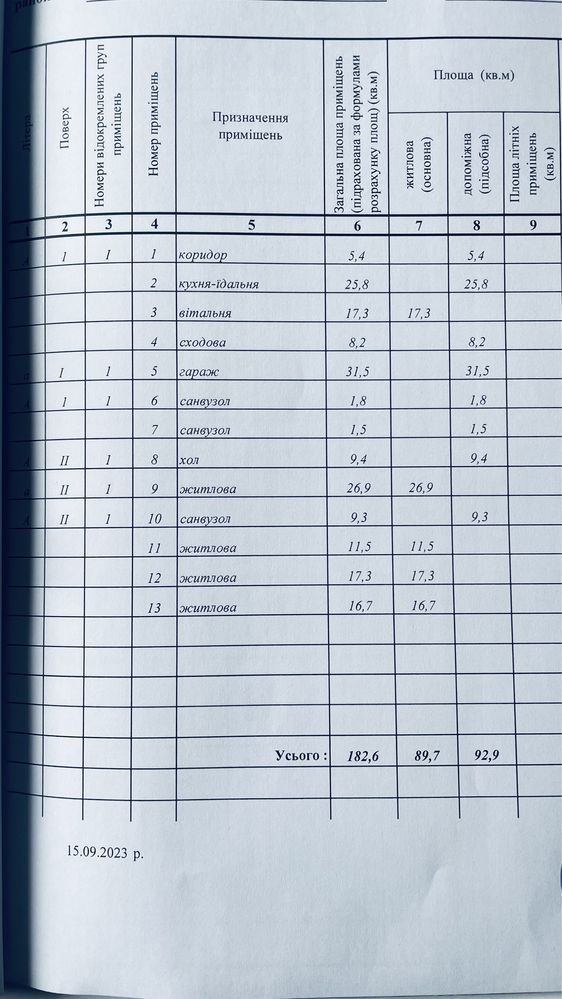 Літера
Поверх
Номери відокремлених груп приміщень
Номер приміщень
Призначення приміщень
Загальна площа приміщень (підрахована за формулами розрахунку площ) (кв.м)
Площа (кв.м)
житлова (основна)
допоміжна (підсобна)
Площа літніх приміщень (кв.м)
1 2 3 4 5 6 7 8 9
А I I 1 коридор 5,4 5,4
2 кухня-їдальня 25,8 25,8
3 вітальня 17,3 17,3
4 сходова 8,2 8,2
а I I 5 гараж 31,5 31,5
А I I 6 санвузол 1,8 1,8
7 санвузол 1,5 1,5
А II I 8 хол 9,4 9,4
а II I 9 житлова 26,9 26,9
А II I 10 санвузол 9,3 9,3
11 житлова 11,5 11,5
12 житлова 17,3 17,3
13 житлова 16,7 16,7
Усього : 182,6 89,7 92,9
15.09.2023 р.